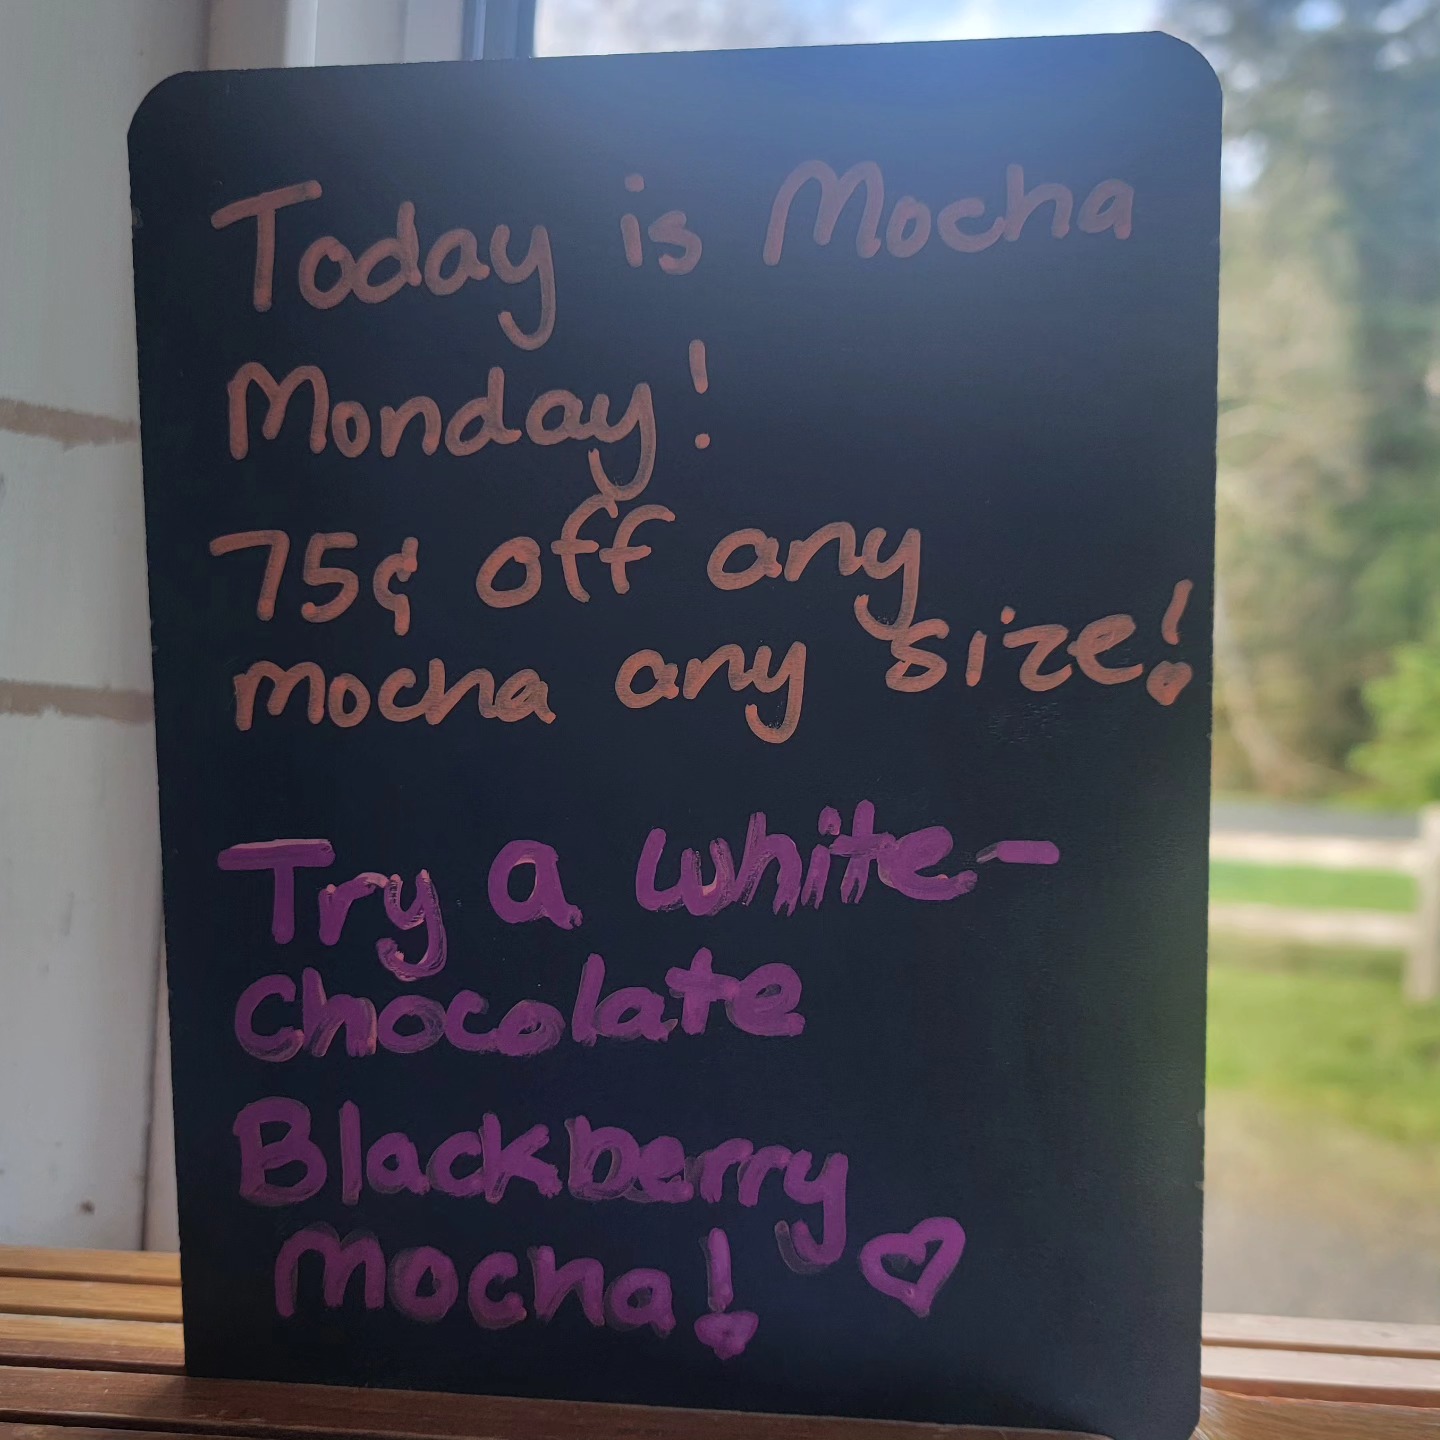 Today is Mocha
Monday!
75¢ off any
mocha any size!
Try a white-
chocolate
Blackberry
mocha!